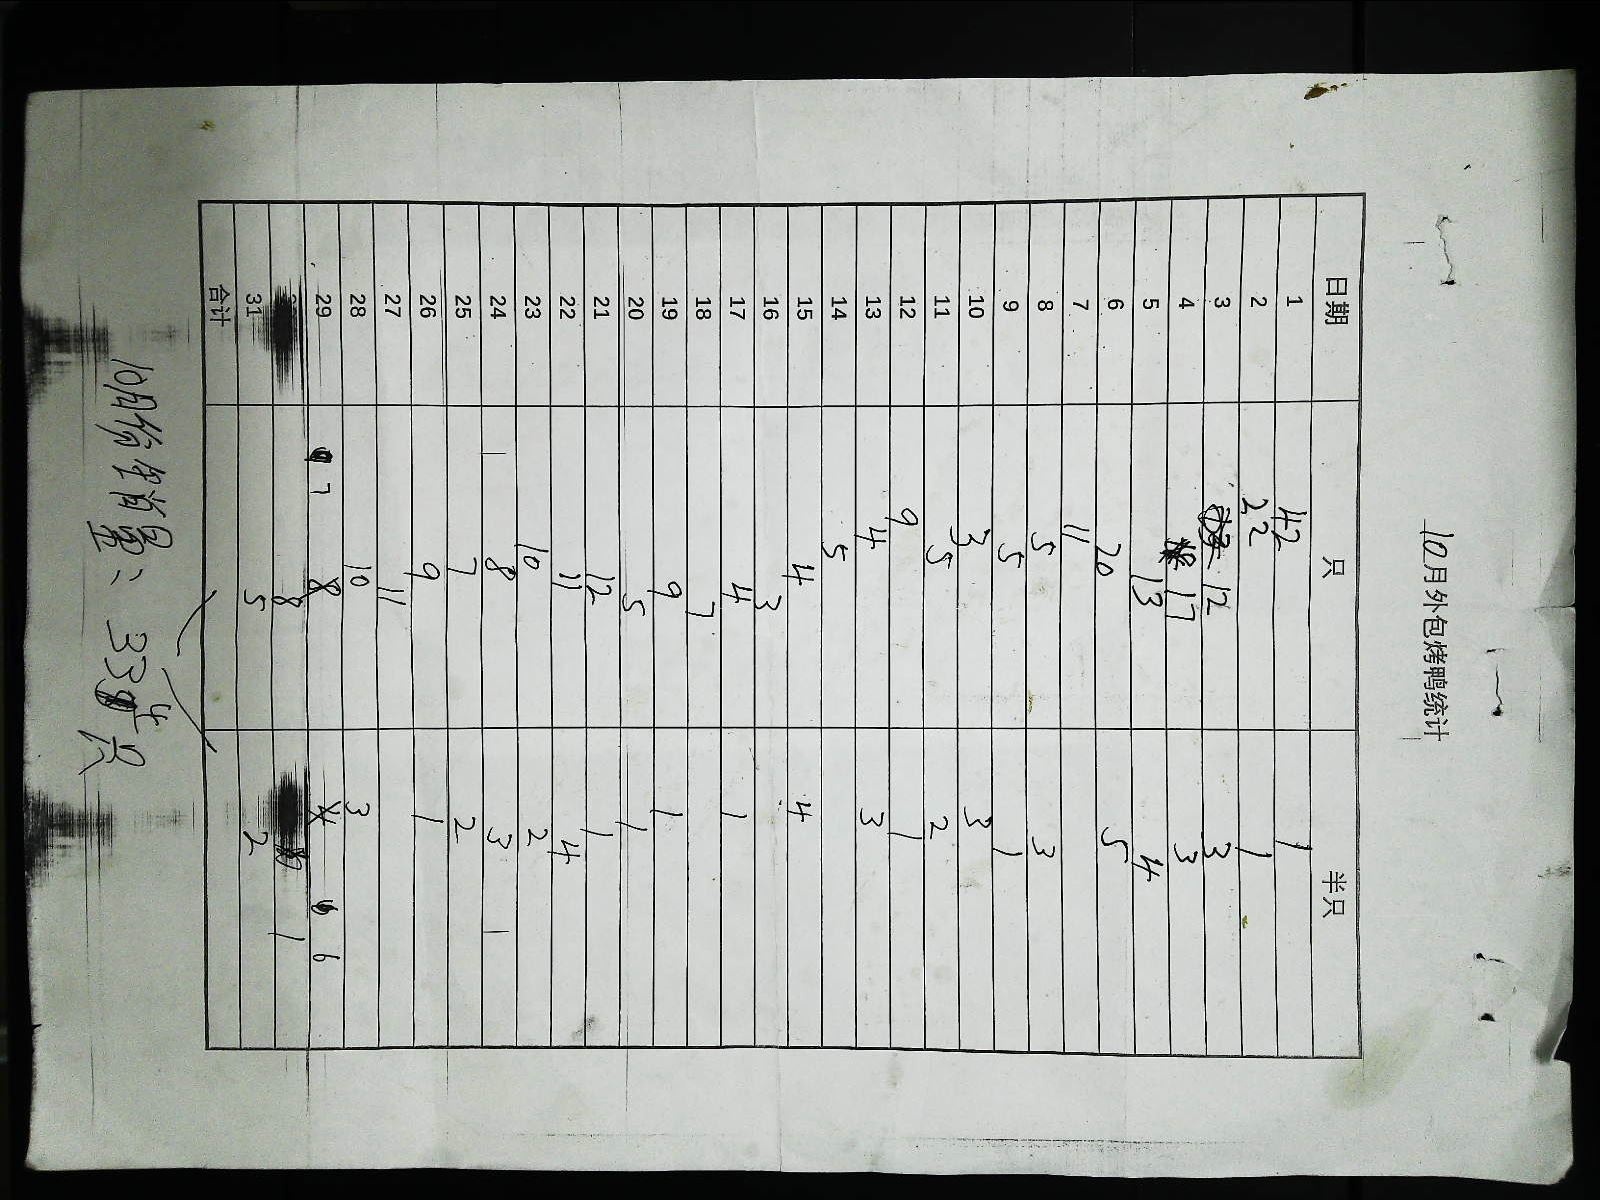 10月外包烤鸭统计
日期 只 半只
1 42 1
2 22 1
3 12 3
4 17 3
5 13 4
6 20 5
7 11
8 5 3
9 5 1
10 3 3
11 5 2
12 9 1
13 4 3
14 5
15 4 4
16 3
17 4 1
18 7
19 9 1
20 5 1
21 12 1
22 11 4
23 10 2
24 8 3
25 7 2
26 9 1
27 11
28 10 3
29 7 6
8 1
31 5 2
合计
10月份 量：334只